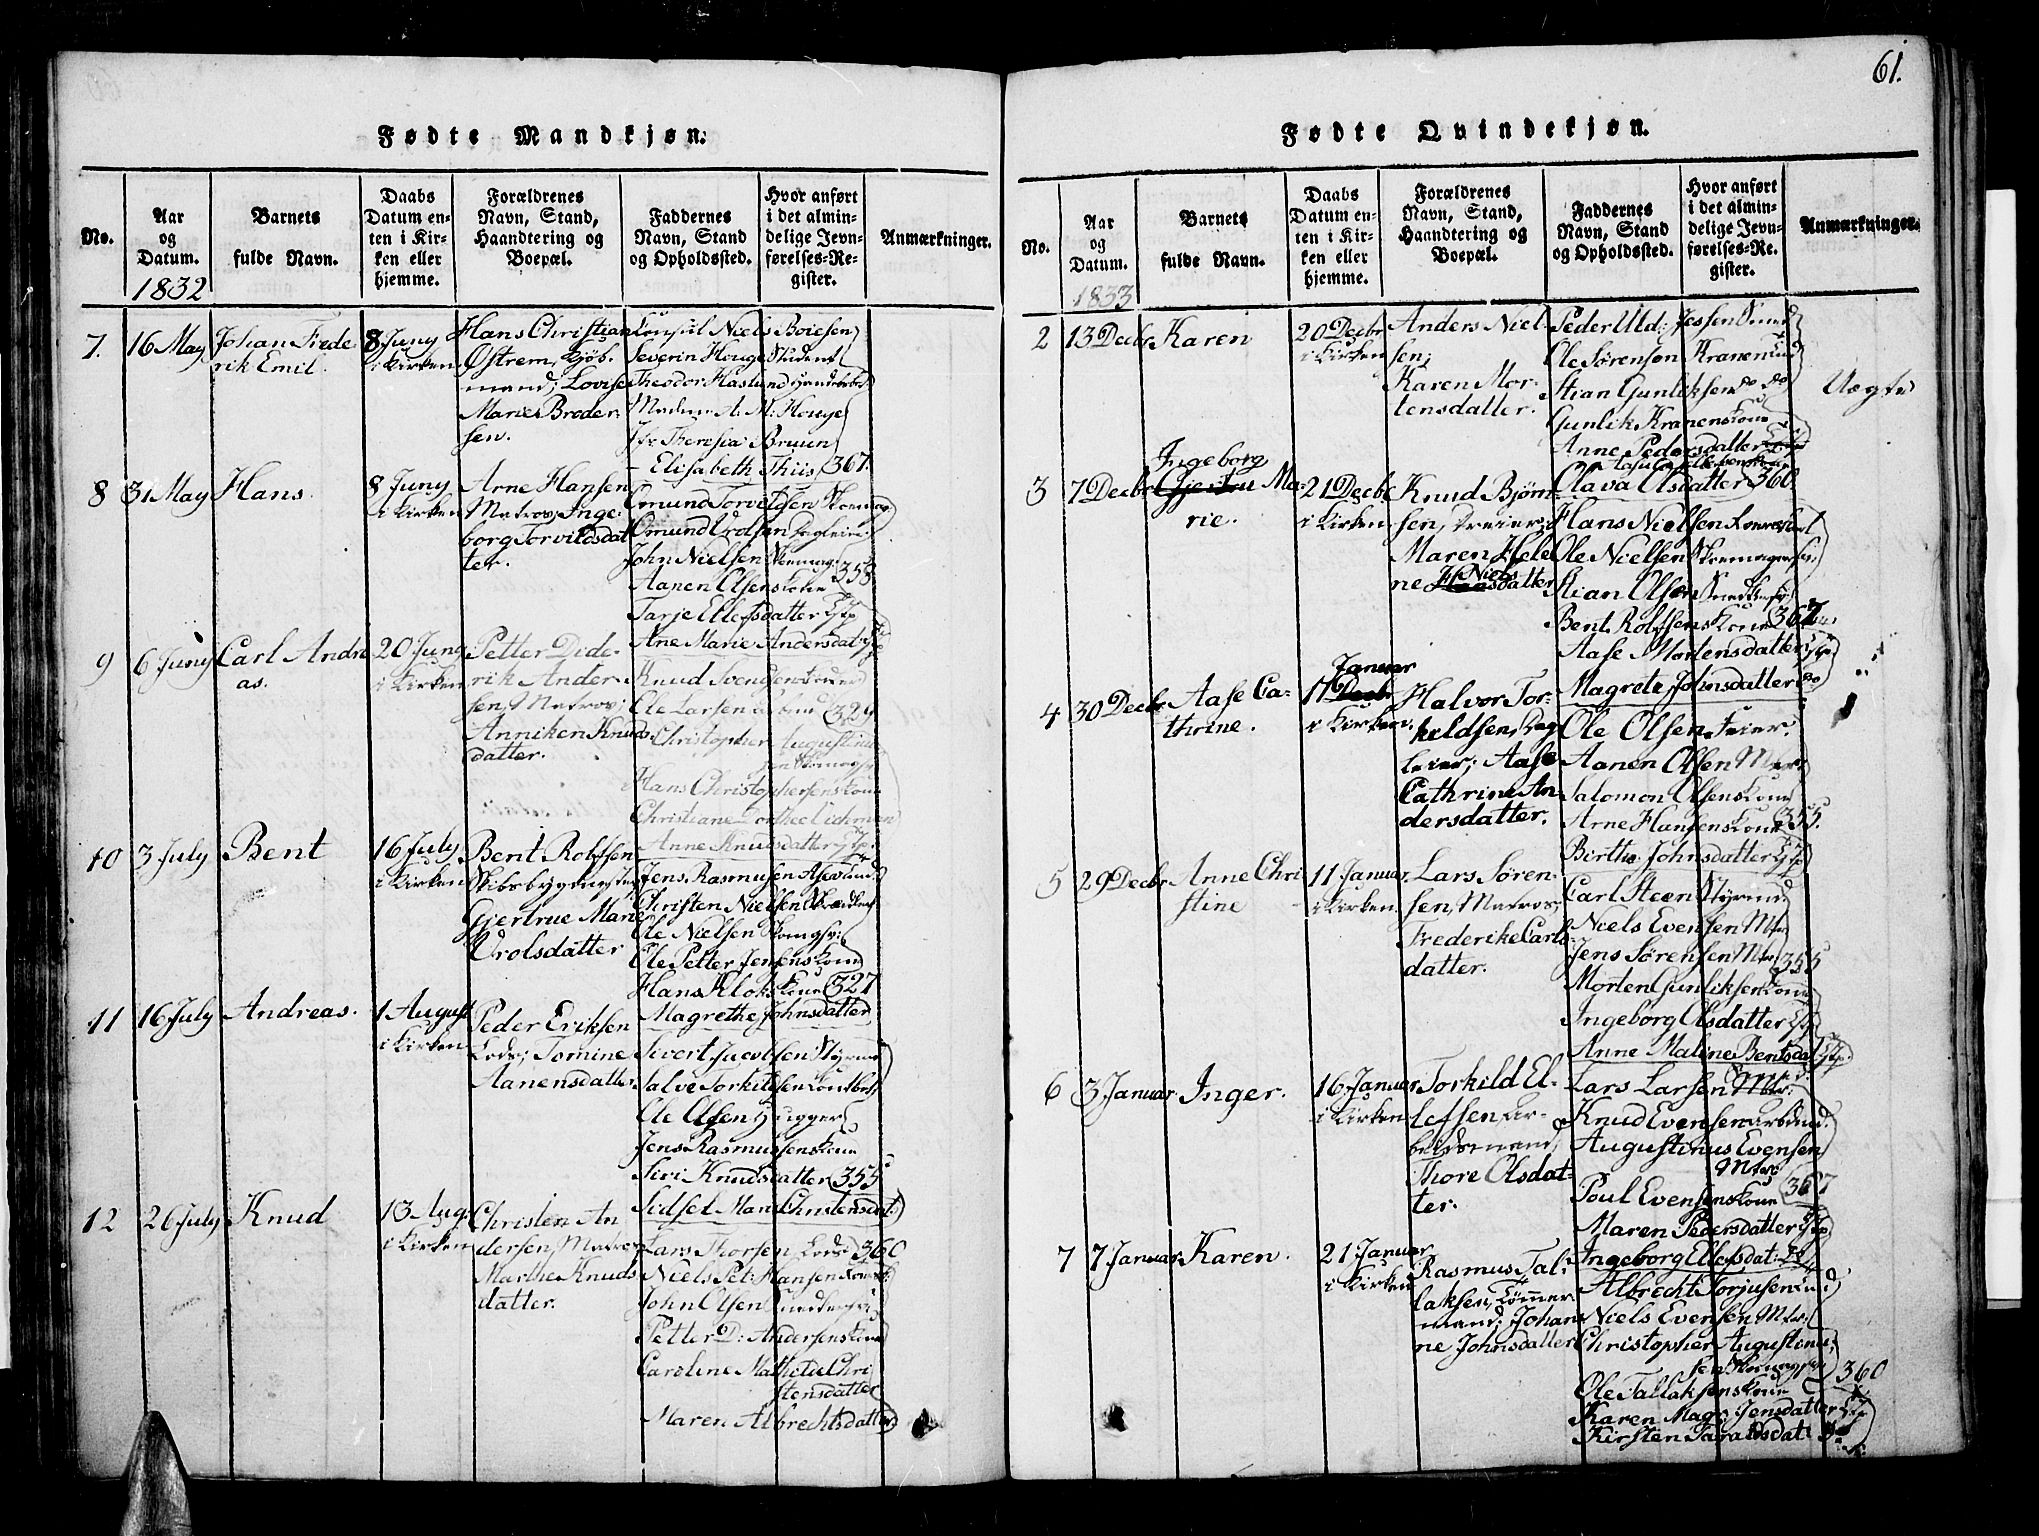 61.
Fødte Mandkjøn.
No.
Aar og Datum.
Barnets fulde Navn.
Daabs Datum enten i Kirken eller hjemme.
Forældrenes Navn, Stand, Haandtering og Boepæl.
Faddernes Navn, Stand og Opholdssted.
Hvor anført i det almindelige Jevnførelses-Register.
Anmærkninger.
1832
7.
16 May
Johan Frede
rik Emil.
8 Juny
i Kirken
Hans Christian
Østrem, Kjøb-
mand; Lovise
Marie Broder-
sen.
Consul Niels Boiesen
Severin Houge Student
Theodor Haslund
Madme A. M. Houge
Jfr Theresia Bruun
– Elisabeth Thiis 367.
8
31 May
Hans.
8 Juny
i Kirken
Arne Hansen
Matros; Inge-
borg Torvildsdat
ter.
Omund Torvildsen
Omund Vrolsen
John Nielsen
358
Aanen Olsens Kone
Tarje Ellefsdatter
9
6 Juny
Carl Andre
as.
20 Juny
i Kirken
Petter Dide-
rik Ander-
sen, Matros;
Anniken Knuds-
datter.
Ane Marie Andersdat
Knud Svendsen
Ole Larsen
329
Christopher Augustinu
sen
Hans Christophersens Kone
Christiane Dorthee Lichman
10
3 July
Bent
16 July
i Kirken
Bent Rolfsen
Skibsbygmester
Gjertrue Marie
Vrolsdatter
Anne Knudsdatter
Jens Rasmusen
Christen Nielsen
Ole Nielsen
Ole Petter Jensens Kone
Hans Kloks Kone 327
11
16 July
Andreas.
1 August
i Kirken
Peder Eriksen
Lods; Tomine
Aanensdatter
Magrethe Johnsdatter
Sivert Jacobsen
Salve Torkildsen
Ole Olsen Hugger
Jens Rasmussens Kone
Siri Knudsdatter 355
12
26 July
Knud
13 Aug.
i Kirken
Christen An
dersen, Matros
Marthe Knuds
datter.
Sidsel Marie Christensdat:
Lars Thorsen, Lods 360
Niels Pet: Hansen
John Olsen
Petter D: Andersens Kone
Caroline Mathilde Chri
stensdatter
Maren Albrechtsdatter
Fødte Qvindekjøn.
No.
Aar og Datum.
Barnets fulde Navn.
Daabs Datum enten i Kirken eller hjemme.
Forældrenes Navn, Stand, Haandtering og Boepæl.
Faddernes Navn, Stand og Opholdssted.
Hvor anført i det almindelige Jevnførelses-Register.
Anmærkninger.
1833
2
13 Decbr
Karen
20 Decbr
i Kirken
Anders Niel-
sen;
Karen Mor-
tensdatter.
Peder Uld: Jessen
Ole Sørensen Kranen
Stian Gunliksen do do
Gunlik Kranens Kone
Anne Pedersdatter
Uægte
3
7 Decbr
Ingeborg
Ma-
rie.
21 Decbr
i Kirken
Knud Bjørn-
sen, Dreier;
Maren Hele
ne Niels
datter
Olava Olsdatter 360
Hans Nielsen
Ole Nielsen
Stian Olsen
Bent Rolfsens Kone 367
Aase Mortensdatter
4
30 Decbr
Aase Ca-
thrine.
Januar
17 Decbr
i Kirken.
Halvor Tor-
kildsen, Dag
leier; Aase
Cathrine An
dersdatter.
Magrete Johnsdatter do
Ole Olsen Feier.
Aanen Olsen Mtr:
Salomon Olsens Kone
Arne Hansens Kone 355.
Birthe Johnsdatter
5
29 Decbr
Anne Chri
stine
11 Januar
i Kirken.
Lars Søren-
sen, Matros;
Frederike Carls-
datter.
Carl Steen Styrmd.
Niels Evensen Mtr
Jens Sørensen Mtr 355
Morten Gunliksens Kone
Ingeborg Olsdatter
Anne Maline Bentsdat
6
3 Januar
Inger.
16 Januar
i Kirken
Torkild El-
lefsen, Ar-
beidsmand;
Thore Olsdat-
ter.
Lars Larsen
Knud Evensen
Augustinus Evensen
Mtr:
Poul Evensens Kone 367
Maren Pedersdatter
7
7 Januar
Karen.
21 Januar
i Kirken
Rasmus Tal-
laksen, Tømmer
mand; Johan
ne Johnsdatter
Ingeborg Ellefsdat:
Albrecht Torjusen
Niels Evensen Mtr.
Christopher Augustinu
sen
360
Ole Tallaksens Kone
Karen Mag: Jensdatter
Kirsten Taraldsdat: